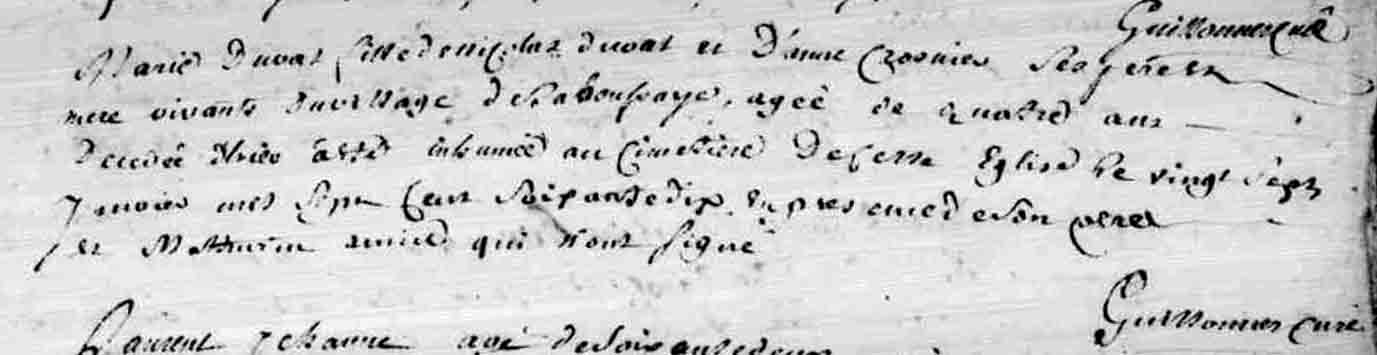 Guillonnier curé
Marie Duval fille de nicolas duval et D'anne Crosnier ses pere et
mere vivants du village de la boussaye, agée de quatre ans
Decedée hier a été inhumée au Cimetiere De cette Eglise le vingt sept
janvier mil sept cent soixante dix. En presence de son pere
et Mathurin qui n'ont signé
Guillonnier curé
Laurent Jehanne agé de soixante deux